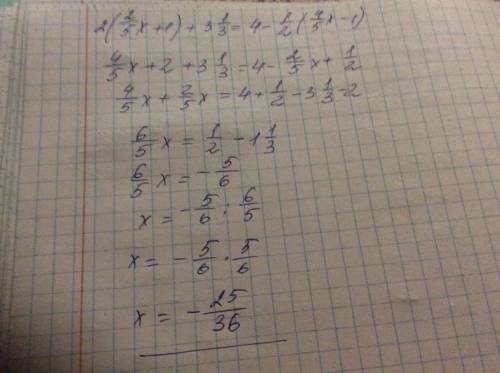 2(2/5x+1)+3 1/3=4-1/2(4/5x-1)
4/5x+2+3 1/3=4-2/5x+1/2
4/5x+2/5x=4+1/2-3 1/3-2
6/5x=1/2-1 1/3
6/5x=-5/6
x=-5/6:6/5
x=-5/6·5/6
x=-25/36